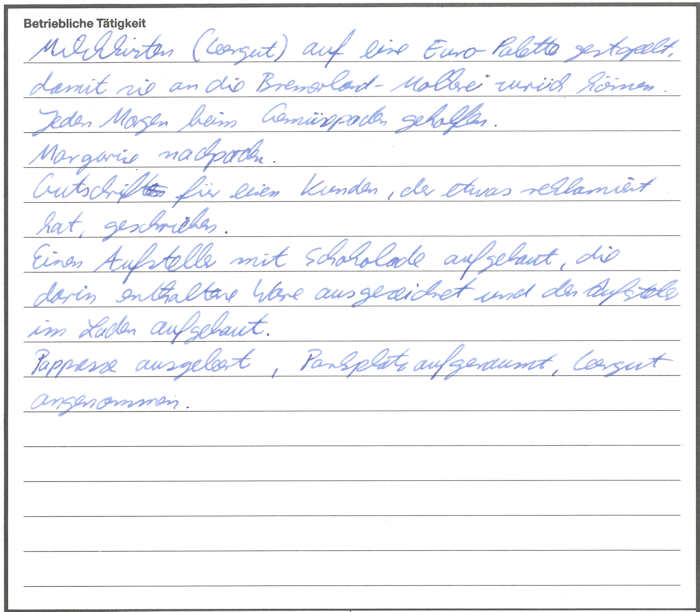 Betriebliche Tätigkeit
Milchkisten (Leergut) auf eine Euro-Palette gestapelt,
damit sie an die Bremerland-Molkerei zurück können.
Jeden Morgen beim Gemüsepacken geholfen.
Margarine nachpacken.
Gutschriften für einen Kunden, der etwas reklamiert
hat, geschrieben.
Einen Aufsteller mit Schokolade aufgebaut, die
darin enthaltene Ware ausgezeichnet und den Aufsteller
im Laden aufgebaut.
Pappresse ausgeleert, Parkplatz aufgeräumt, Leergut
angenommen.